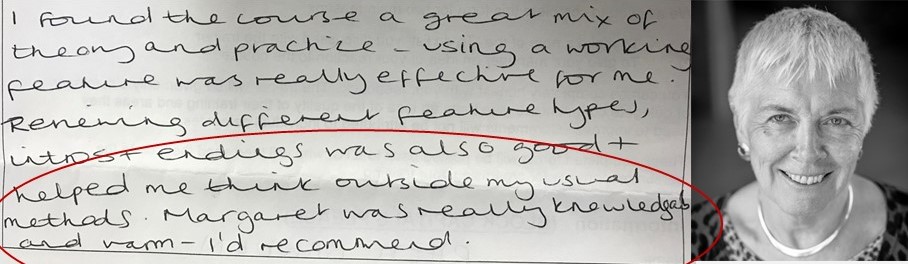 I found the course a great mix of
theory and practice – using a working
feature was really effective for me.
Renewing different feature types,
intros + endings was also good +
helped me think outside my usual
methods. Margaret was really knowledgab
and warm – I'd recommend.